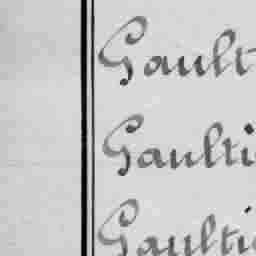 Gault
Gaulti
Gaulti